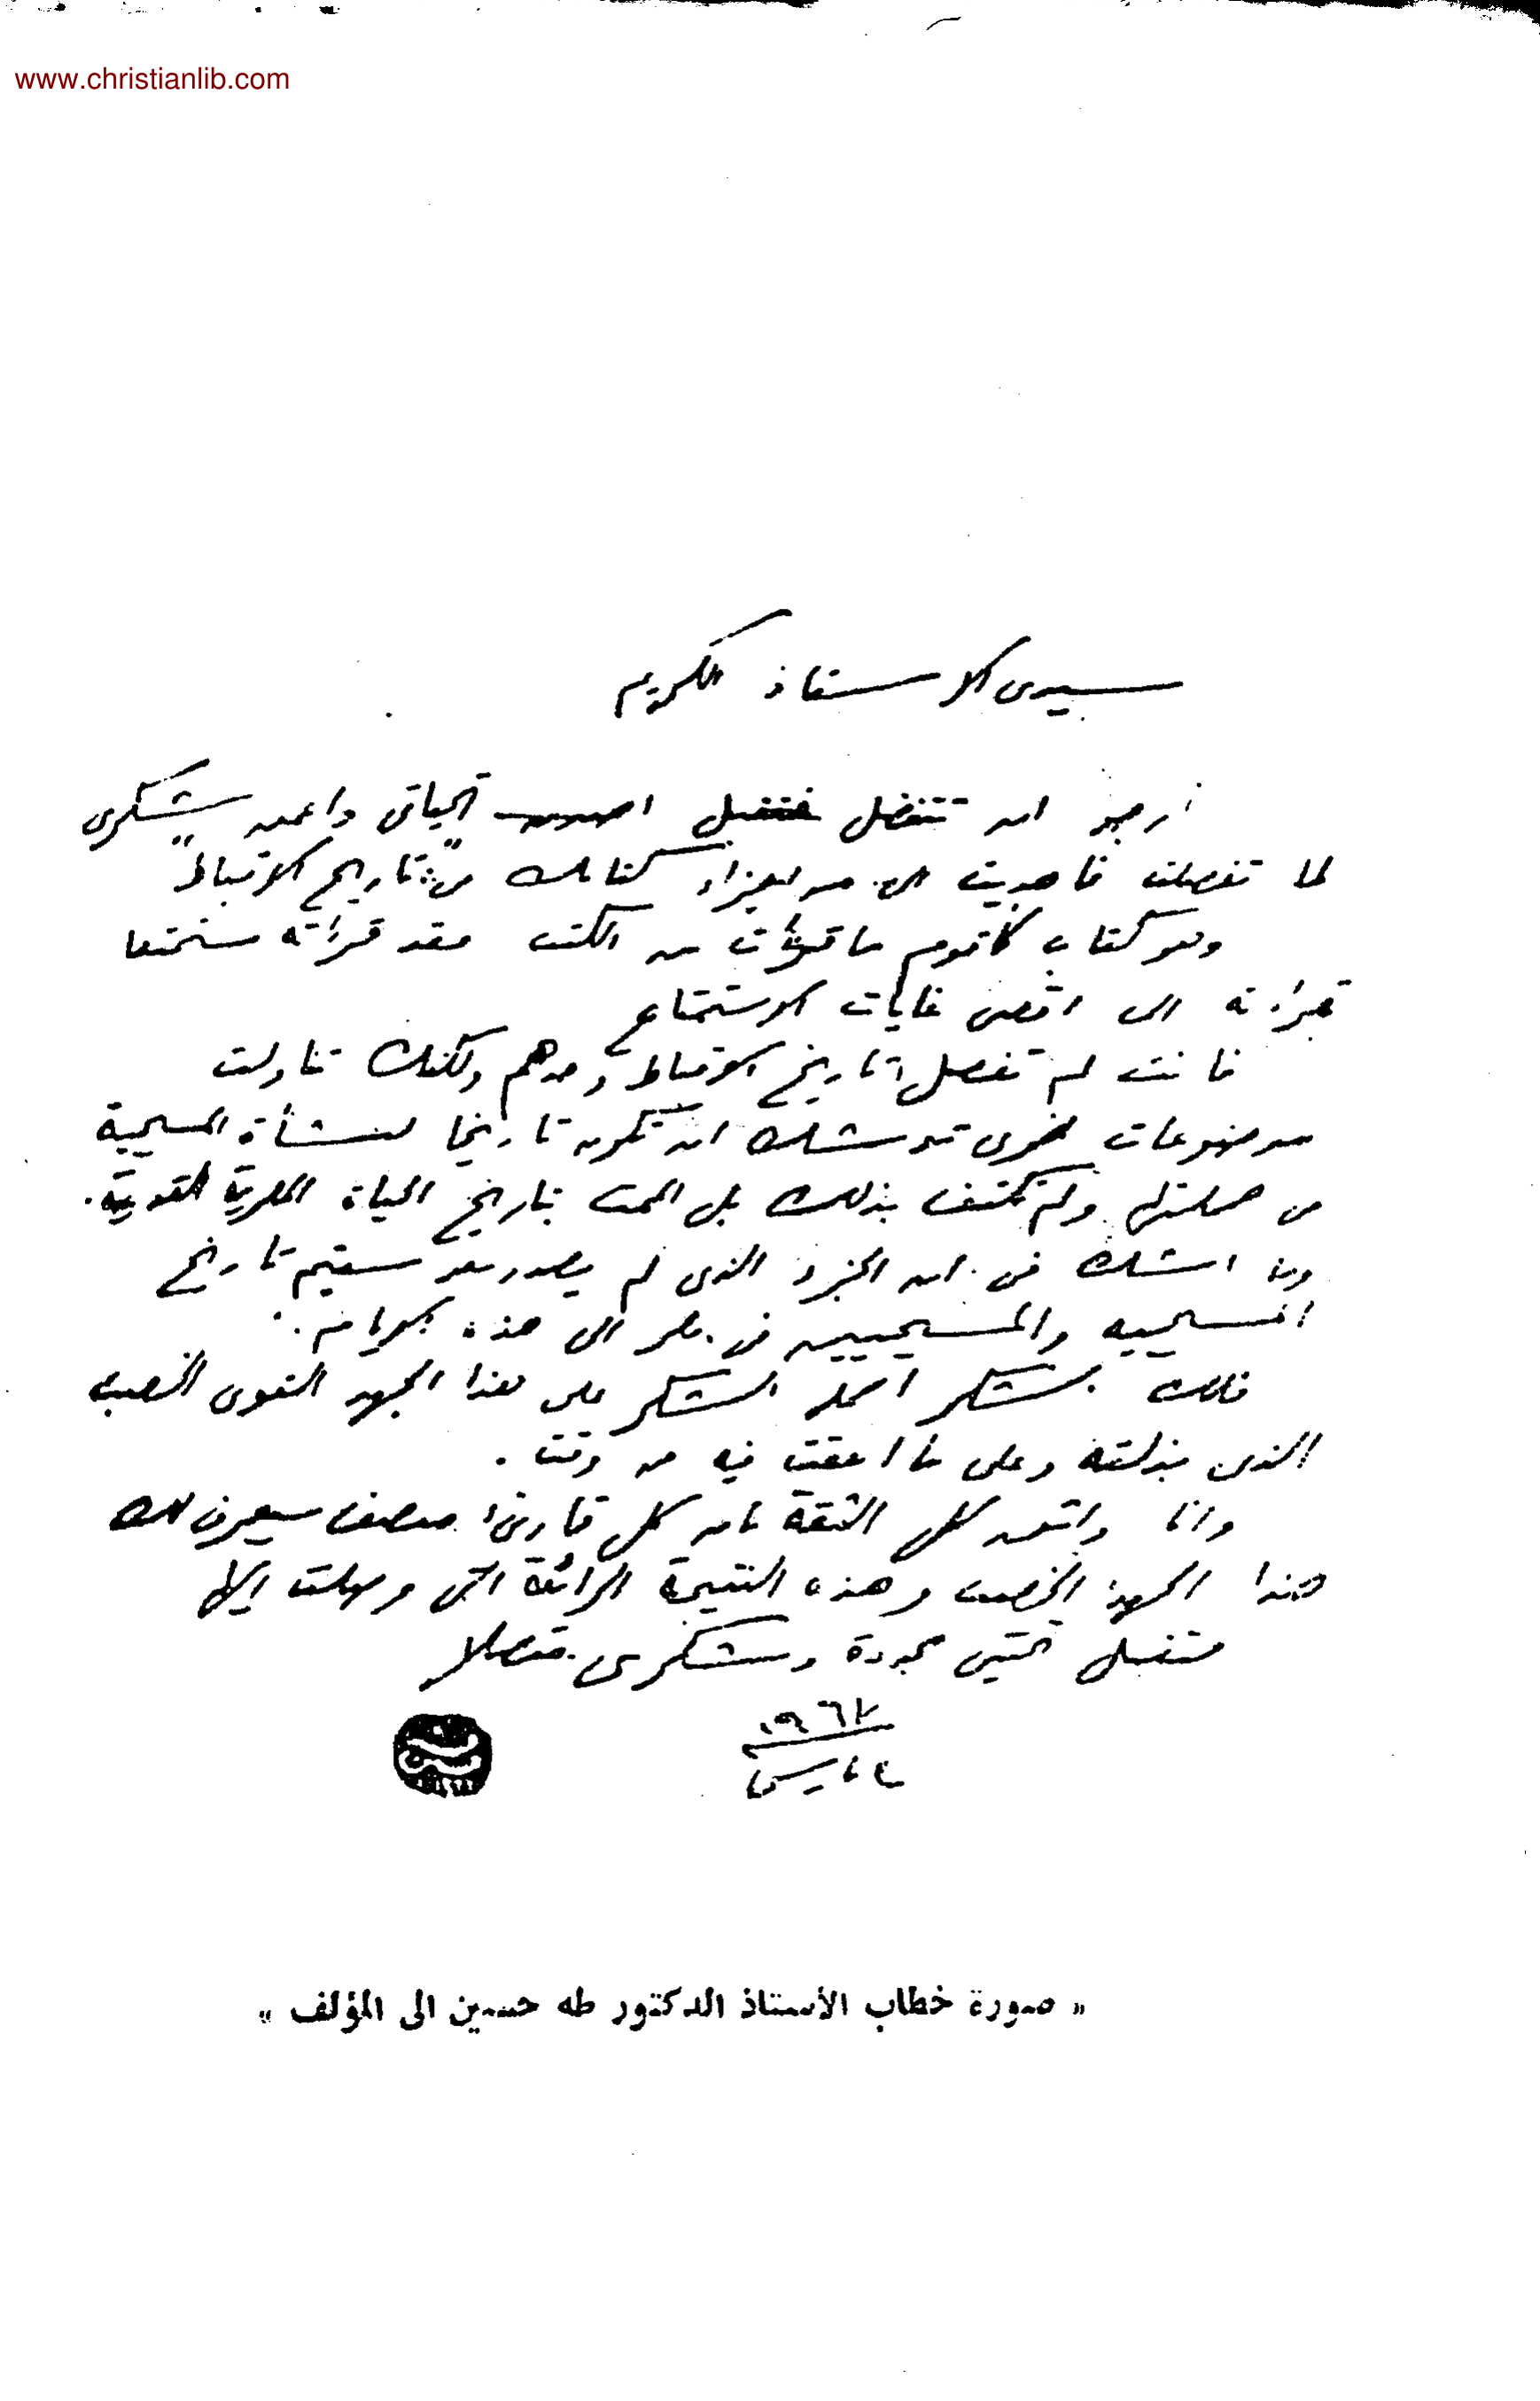 www.christianlib.com
سيدى الاستاذ الكريم
أرجو ان تتفضل فتقبل اصدق تحياتى واعمق شكرى
لما تفضلت فاهديت الى من اجزاء كتابك عن "تاريخ الاقباط"
وهو كتاب كأقوم ما قرأت من الكتب فقد قرأته مستمتعا
بقراءته الى اقصى غايات الاستمتاع
فانت لم تفصل تاريخ الاقباط وحدهم ولكنك تناولت
موضوعات اخرى توشك ان تكون تاريخا لنشأة المسيحية
ولم تكتف بذلك بل الممت بتاريخ الحياة المصرية القومية.
وما اشك فى ان الجزء الذى لم يصدر بعد سيتم تاريخ
المسيحيه والمسيحيين فى مصر الى هذه الايام.
فلك الشكر اجمل الشكر على هذا الجهد القوى الخصب
الذى بذلته وعلى ما انفقت فيه من وقت.
وانا واثق كل الثقة بان كل قارئ منصف سيعرف لك
هذا الجهد الخصب وهذه النتيجة الرائعة التى وصلت اليها
فتقبل تحيتى مجددة وشكرى متصلا
١٩٦٧
٤ مارس
« صورة خطاب الأستاذ الدكتور طه حسين الى المؤلف »